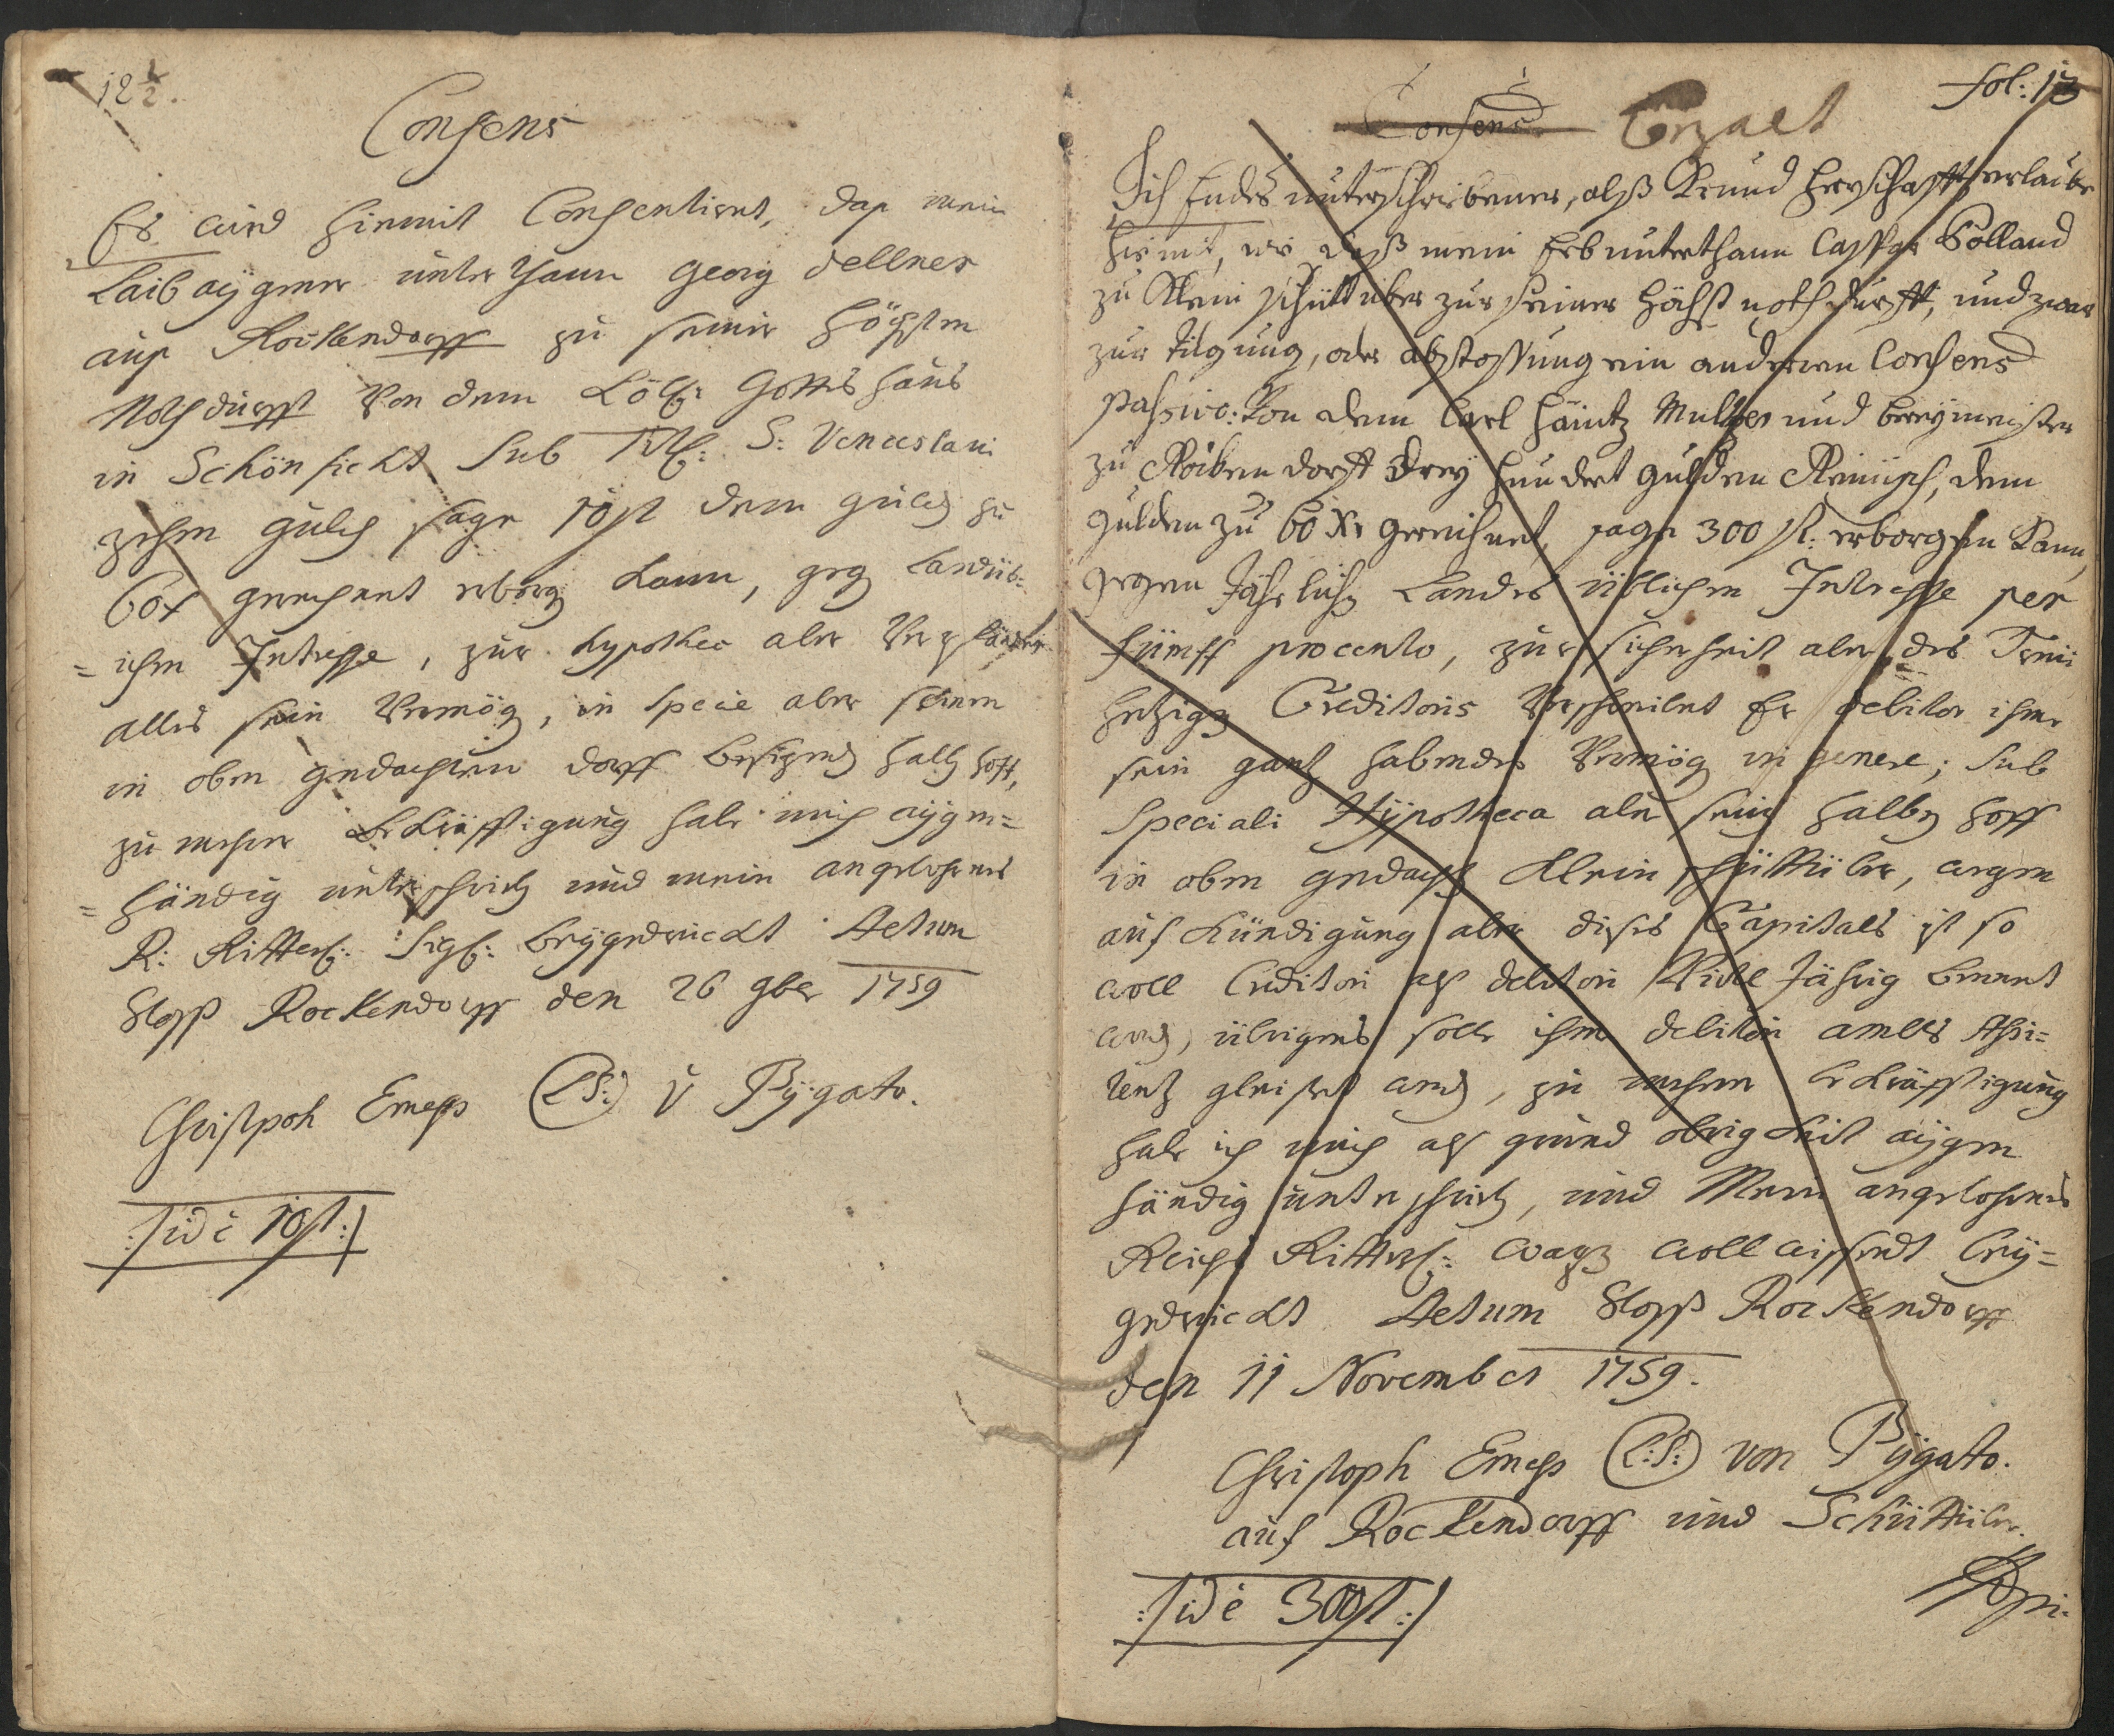 12½.
Consens
Es wird hiermit Consentiret, daß mein
Laibaygner unterthann Georg dellner
auß Rockendorff zu seiner höchsten
Nothdurfft Von dem Löbl: Gottshaus
in Schönficht Sub Titl: S: Venceslavi
zehen guld sage 10 fl dem guld zu
60 x gerechnet erborg kann, geg Landüb=
=lichen Intresse, zur hypothec aber Verpfändt
alles sein Vermög, in specie aber seinen
in oben gedachten dorff besizend halb hoff,
zu mehrer Bekräfftigung habe mich aygen=
=händig unterschrieb und mein angebohrnes
R: Ritterl: Sigl: beygedruckt Actum
Schloß Rockendorff den 26 9ber 1759
Christpoh Emeß (L:S:) v Pygato.
:/ id è 10 fl :/
fol: 13
Consens Cozalt
Ich Endes unterschriebener, alß Grund Herrschafft erlaube
hiemit, wie daß mein Erbunterthann Casspar Holland
zu Klein schüttüber zur seiner höchst nothdurfft, und zwar
zur tilgung, oder abstossung ein anderen Consens
passivo: Von dem Carl häintz Multzer und breymeister
zu Rockendorff Drey hundert gulden Reinisch, dem
Gulden zu 60 Xr gerechnet, sage 300 fl: erborgen kann,
gegen Jährlich Landes üblichen Intresse per
fümff procento, zur sicherheit aber des Treü
hertzigen Creditoris Verschreibet Er debitor ihme
sein gantz habendes Vermög in genere; Sub
Speciali Hypotheca aber sein halben hoff
in oben gedacht Klein schüttüber, wegen
aufkündigung aber dises Capitals ist so
woll Creditori als debitori Virtl Jährig benent
word, übrigens solle ihme debitori ambts Assi=
tenz gleistet werd, zu mehrer bekräfftigung
habe ich mich als grund obrigkeit aygen
händig unterschrieb, und Mein angebohrnes
Reichs Ritterl: wapen woll wissendt bey=
gedruckt Actum Schloß Rockendorff
den 11 November 1759.
Christoph Emeß (L:S:) von Pygato.
auf Rockendorff und Schüttüber.
:/ id è 300 fl :/